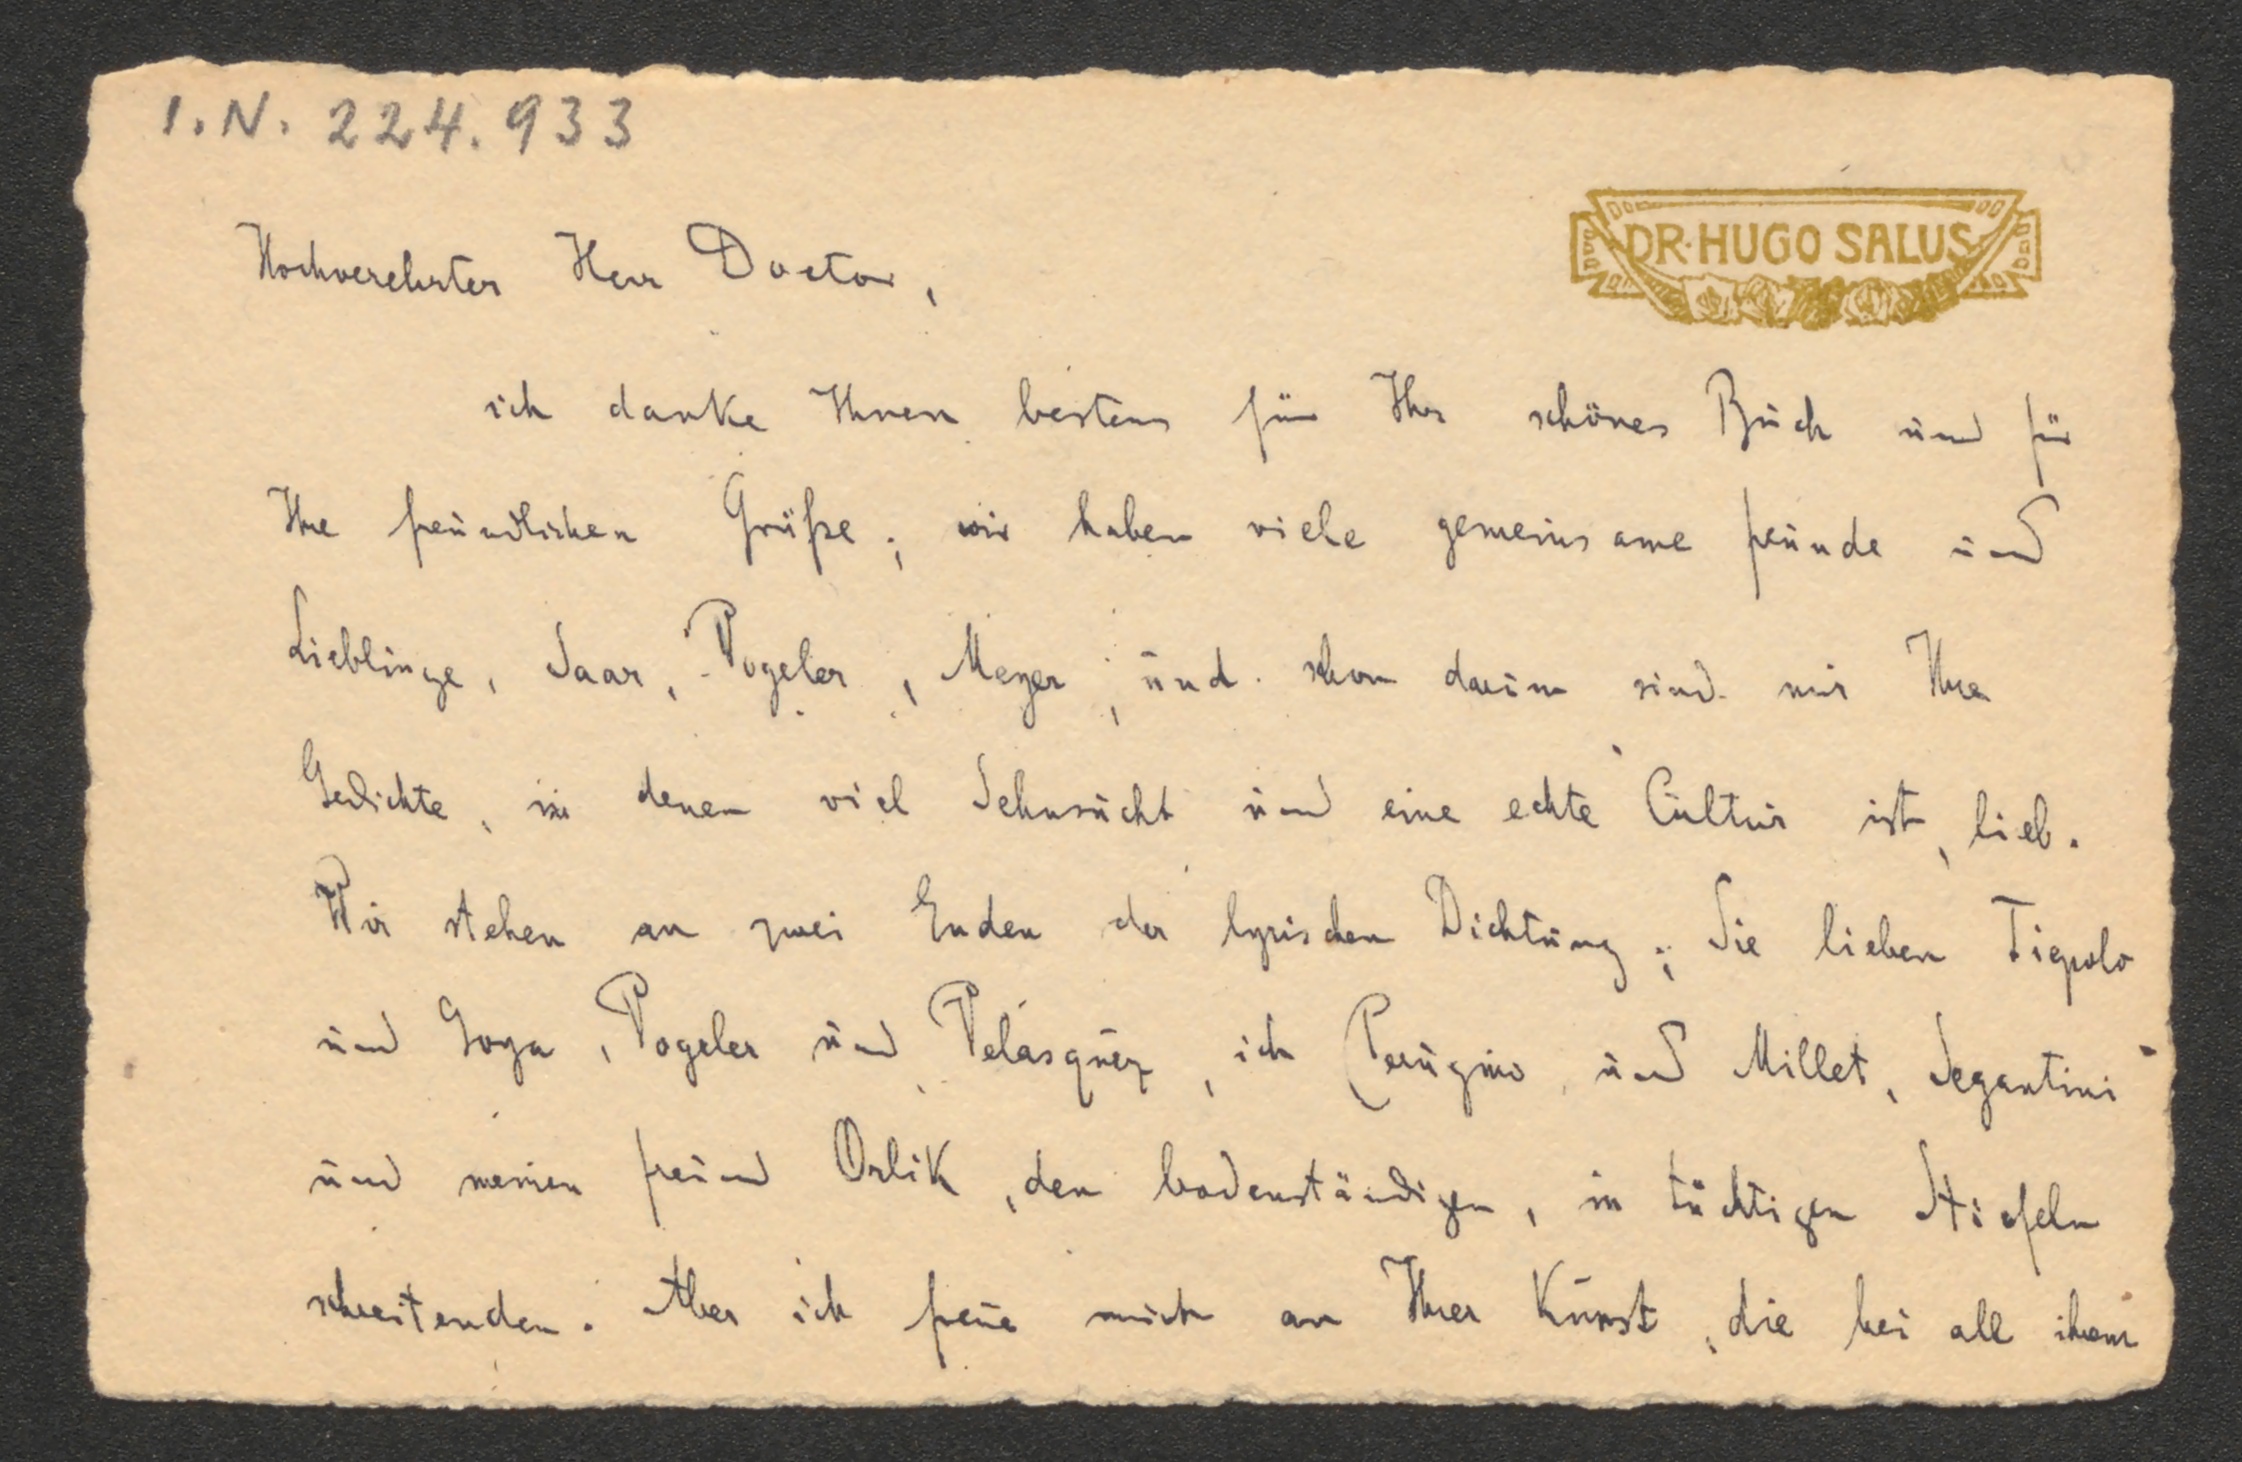 I.N. 224.933
DR. HUGO SALUS
Hochverehrter Herr Doctor,
ich danke Ihnen bestens für Ihr schönes Buch und für
Ihre freundlichen Grüße; wir haben viele gemeinsame Freunde und
Lieblinge, Saar, Vogeler, Meyer, und schon darum sind mir Ihre
Gedichte, in denen viel Sehnsucht und eine echte Cultur ist, lieb.
Wir stehen an zwei Enden der lyrischen Dichtung; Sie lieben Tiepolo
und Goya, Vogeler und Velásquez, ich Perugino und Millet, Segantini
und meinen Freund Orlik, den bodenständigen, in tüchtigen Stiefeln
schreitenden. Aber ich freue mich an Ihrer Kunst, die bei all ihrem